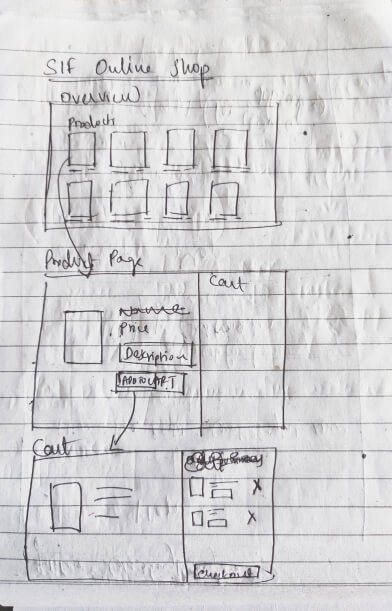 SIF Online Shop
Overview
Products
Product Page
Cart
Name
Price
Description
ADD TO CART
Cart
X
X
Checkout